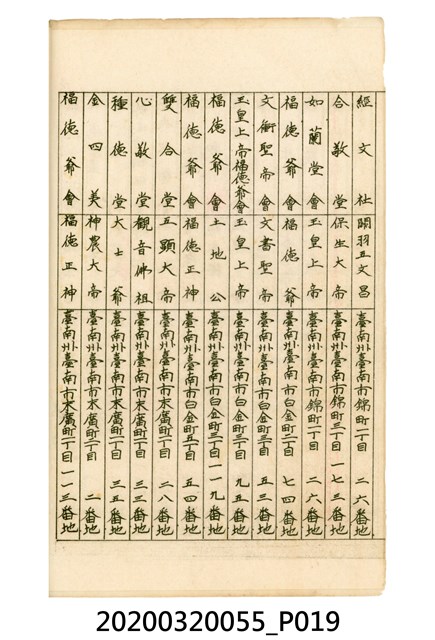 經文社 關羽五文昌 臺南州臺南市錦町二丁目 二六番地
合敬堂 保生大帝 臺南州臺南市錦町三丁目 一七三番地
如蘭堂會 玉皇上帝 臺南州臺南市錦町二丁目 二六番地
福德爺會 福德爺 臺南州臺南市白金町二丁目 七四番地
文衡聖帝會 文書聖帝 臺南州臺南市白金町三丁目 五三番地
玉皇上帝福德爺會 玉皇上帝 臺南州臺南市白金町三丁目 九五番地
福德爺會 土地公 臺南州臺南市白金町三丁目 一一九番地
福德爺會 福德正神 臺南州臺南市白金町五丁目 五四番地
雙合堂 五顯大帝 臺南州臺南市末廣町二丁目 二八番地
心敬堂 觀音佛祖 臺南州臺南市末廣町二丁目 三三番地
種德堂 大士爺 臺南州臺南市末廣町二丁目 三五番地
金四美 神農大帝 臺南州臺南市末廣町二丁目 二番地
福德爺會 福德正神 臺南州臺南市末廣町二丁目 一一三番地
20200320055_P019